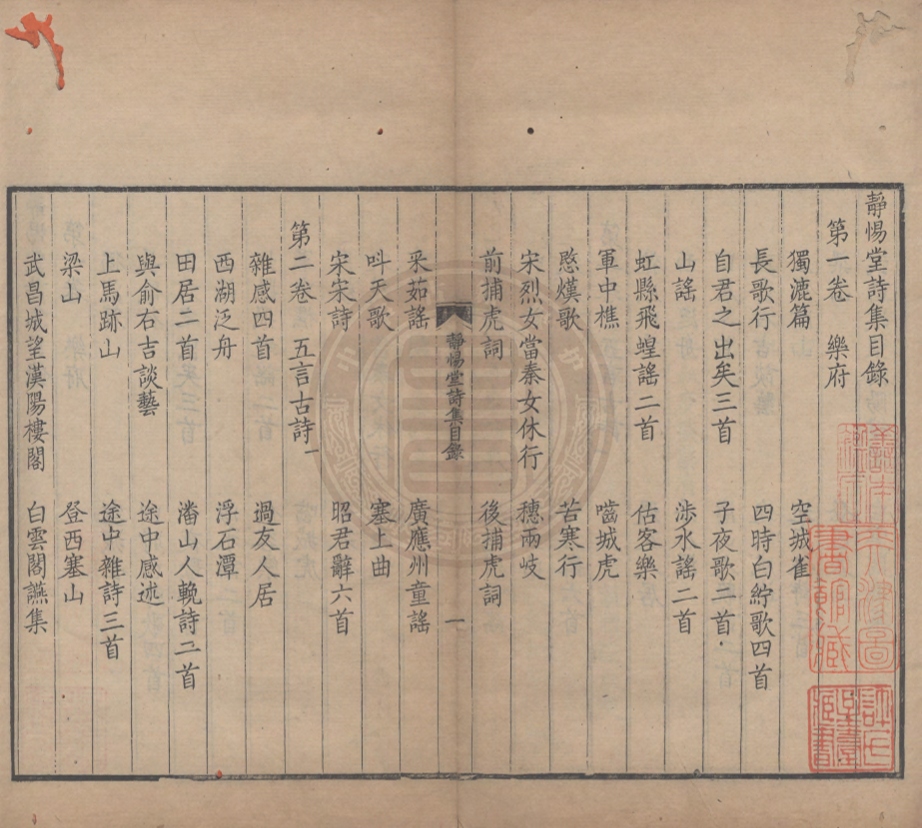 靜惕堂詩集目錄
第一卷 樂府
獨漉篇 空城雀
長歌行 四時白紵歌四首
自君之出矣三首 子夜歌二首
山謠 涉水謠二首
虹縣飛蝗謠二首 估客樂
軍中樵 嚙城虎
愍熯歌 苦寒行
宋烈女當秦女休行 穗兩岐
前捕虎詞 後捕虎詞
靜惕堂詩集目錄 一
采茹謠 廣應州童謠
呌天歌 塞上曲
宋宋詩 昭君辭六首
第二卷 五言古詩一
雜感四首 過友人居
西湖泛舟 浮石潭
田居二首 潘山人輓詩二首
與俞右吉談藝 途中感述
上馬跡山 途中雜詩三首
梁山 登西塞山
武昌城望漢陽樓閣 白雲閣讌集